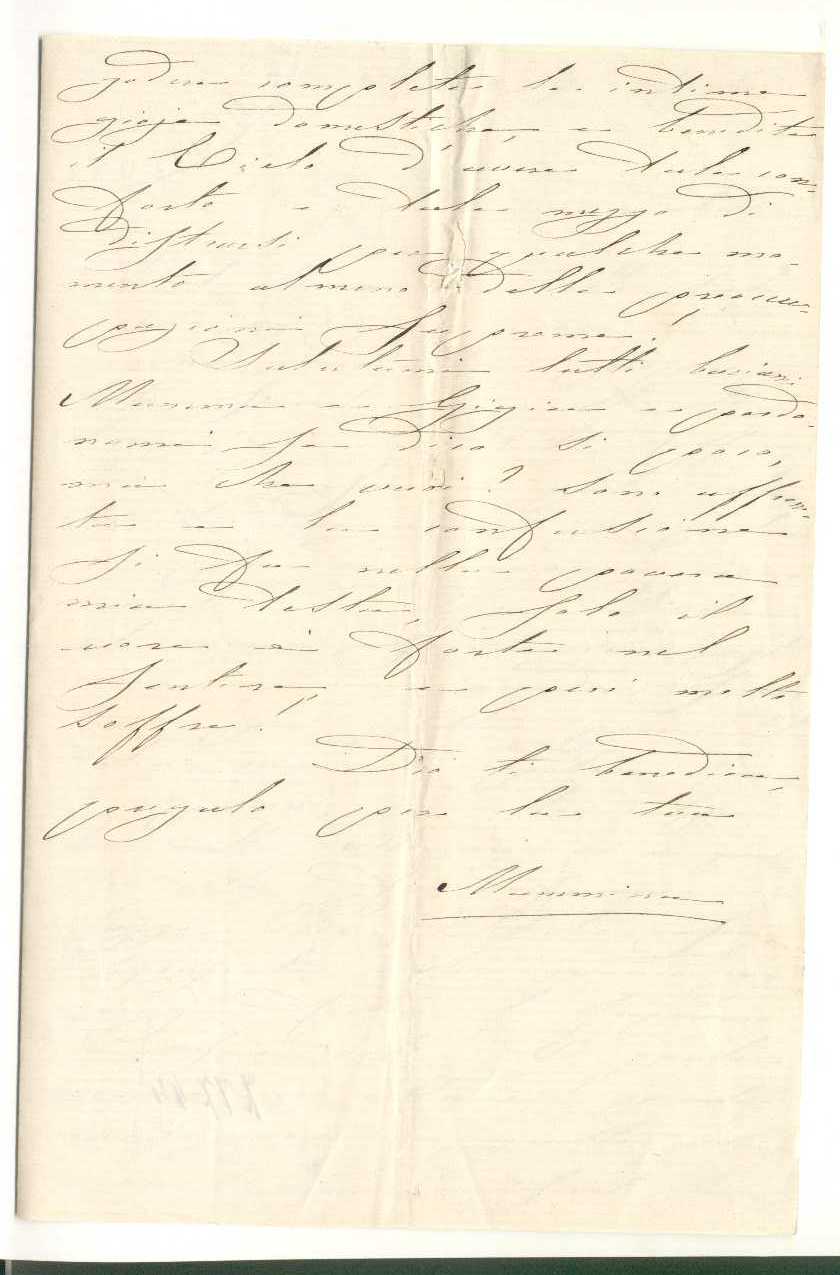 godere complete le intime
gioje domestiche, e benedite
il Cielo d'avere tale con-
forto e tale mezzo di
distrarsi per qualche mo-
mento almeno dalle preoccu-
pazioni supreme.
Salutami tutti baciami
Mamma e Gigia e perdo-
nami se dico si poco,
ma che vuoi? sono affran-
ta e la confusione
si fa nella povera
mia testa, solo il
cuore è forte nel
sentire e però molto
soffre!
Dio ti benedica,
pregalo per la tua
Mammina